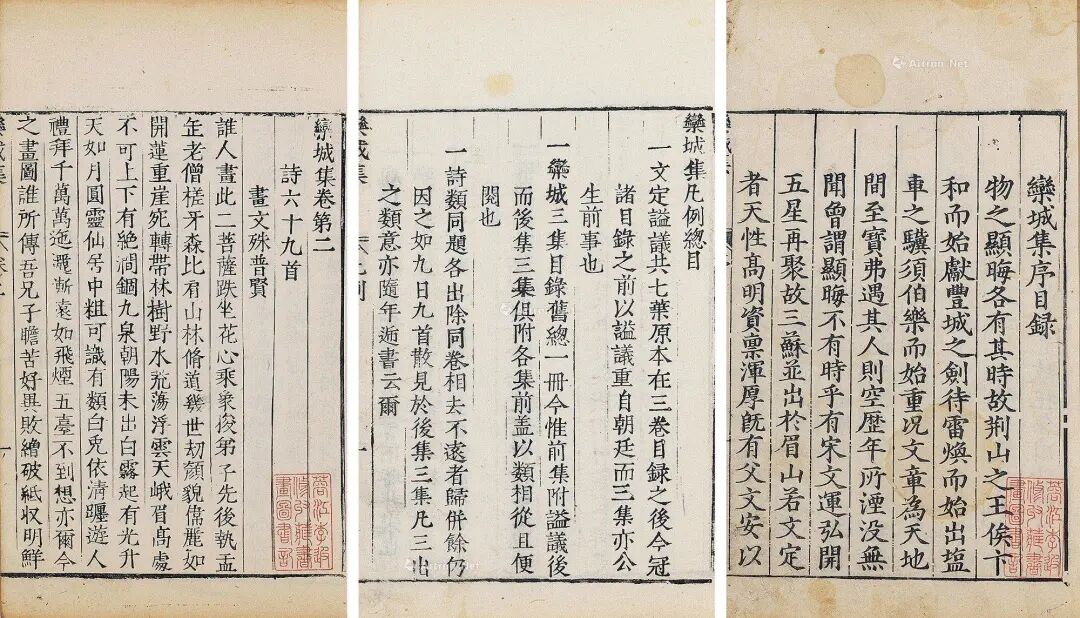 欒城集序目録
物之顯晦各有其時故荆山之玉俟卞
和而始獻豐城之劍待雷煥而始出塩
車之驥須伯樂而始重况文章為天地
間至寶弗遇其人則空歴年所湮没無
聞曾謂顯晦不有時乎有宋文運弘開
五星再聚故三蘇並出於眉山若文定
者天性高明資禀渾厚既有父文安以
Airtron Net
欒城集凡例總目
一文定謚議共七葉原本在三卷目録之後今冠
諸目録之前以謚議重自朝廷而三集亦公
生前事也
一欒城三集目錄舊總一冊今惟前集附謚議後
而後集三集俱附各集前盖以類相從且便
閱也
一詩類同題各出除同卷相去不遠者歸併餘仍
因之如九日九首散見於後集三集凡三出
之類意亦隨年逝書云爾
欒城集
凡例
一
欒城集卷第二
詩六十九首
畫文殊普賢
誰人畫此二菩薩趺坐花心乘象狻弟子先後執盂
缶老僧槎牙森比肩山林脩道幾世劫顔貌偉麗如
開蓮重崖宛轉帶林樹野水荒蕩浮雲天峨眉髙處
不可上下有絶澗錮九泉朝陽未出白霧起有光升
天如月圓靈仙居中粗可識有類白兎依淸躔遊人
禮拜千萬萬迤邐漸逺如飛煙五臺不到想亦爾今
之畫圖誰所傳吾兄子瞻苦好異敗繒破紙収明鮮
欒城集
卷二
一